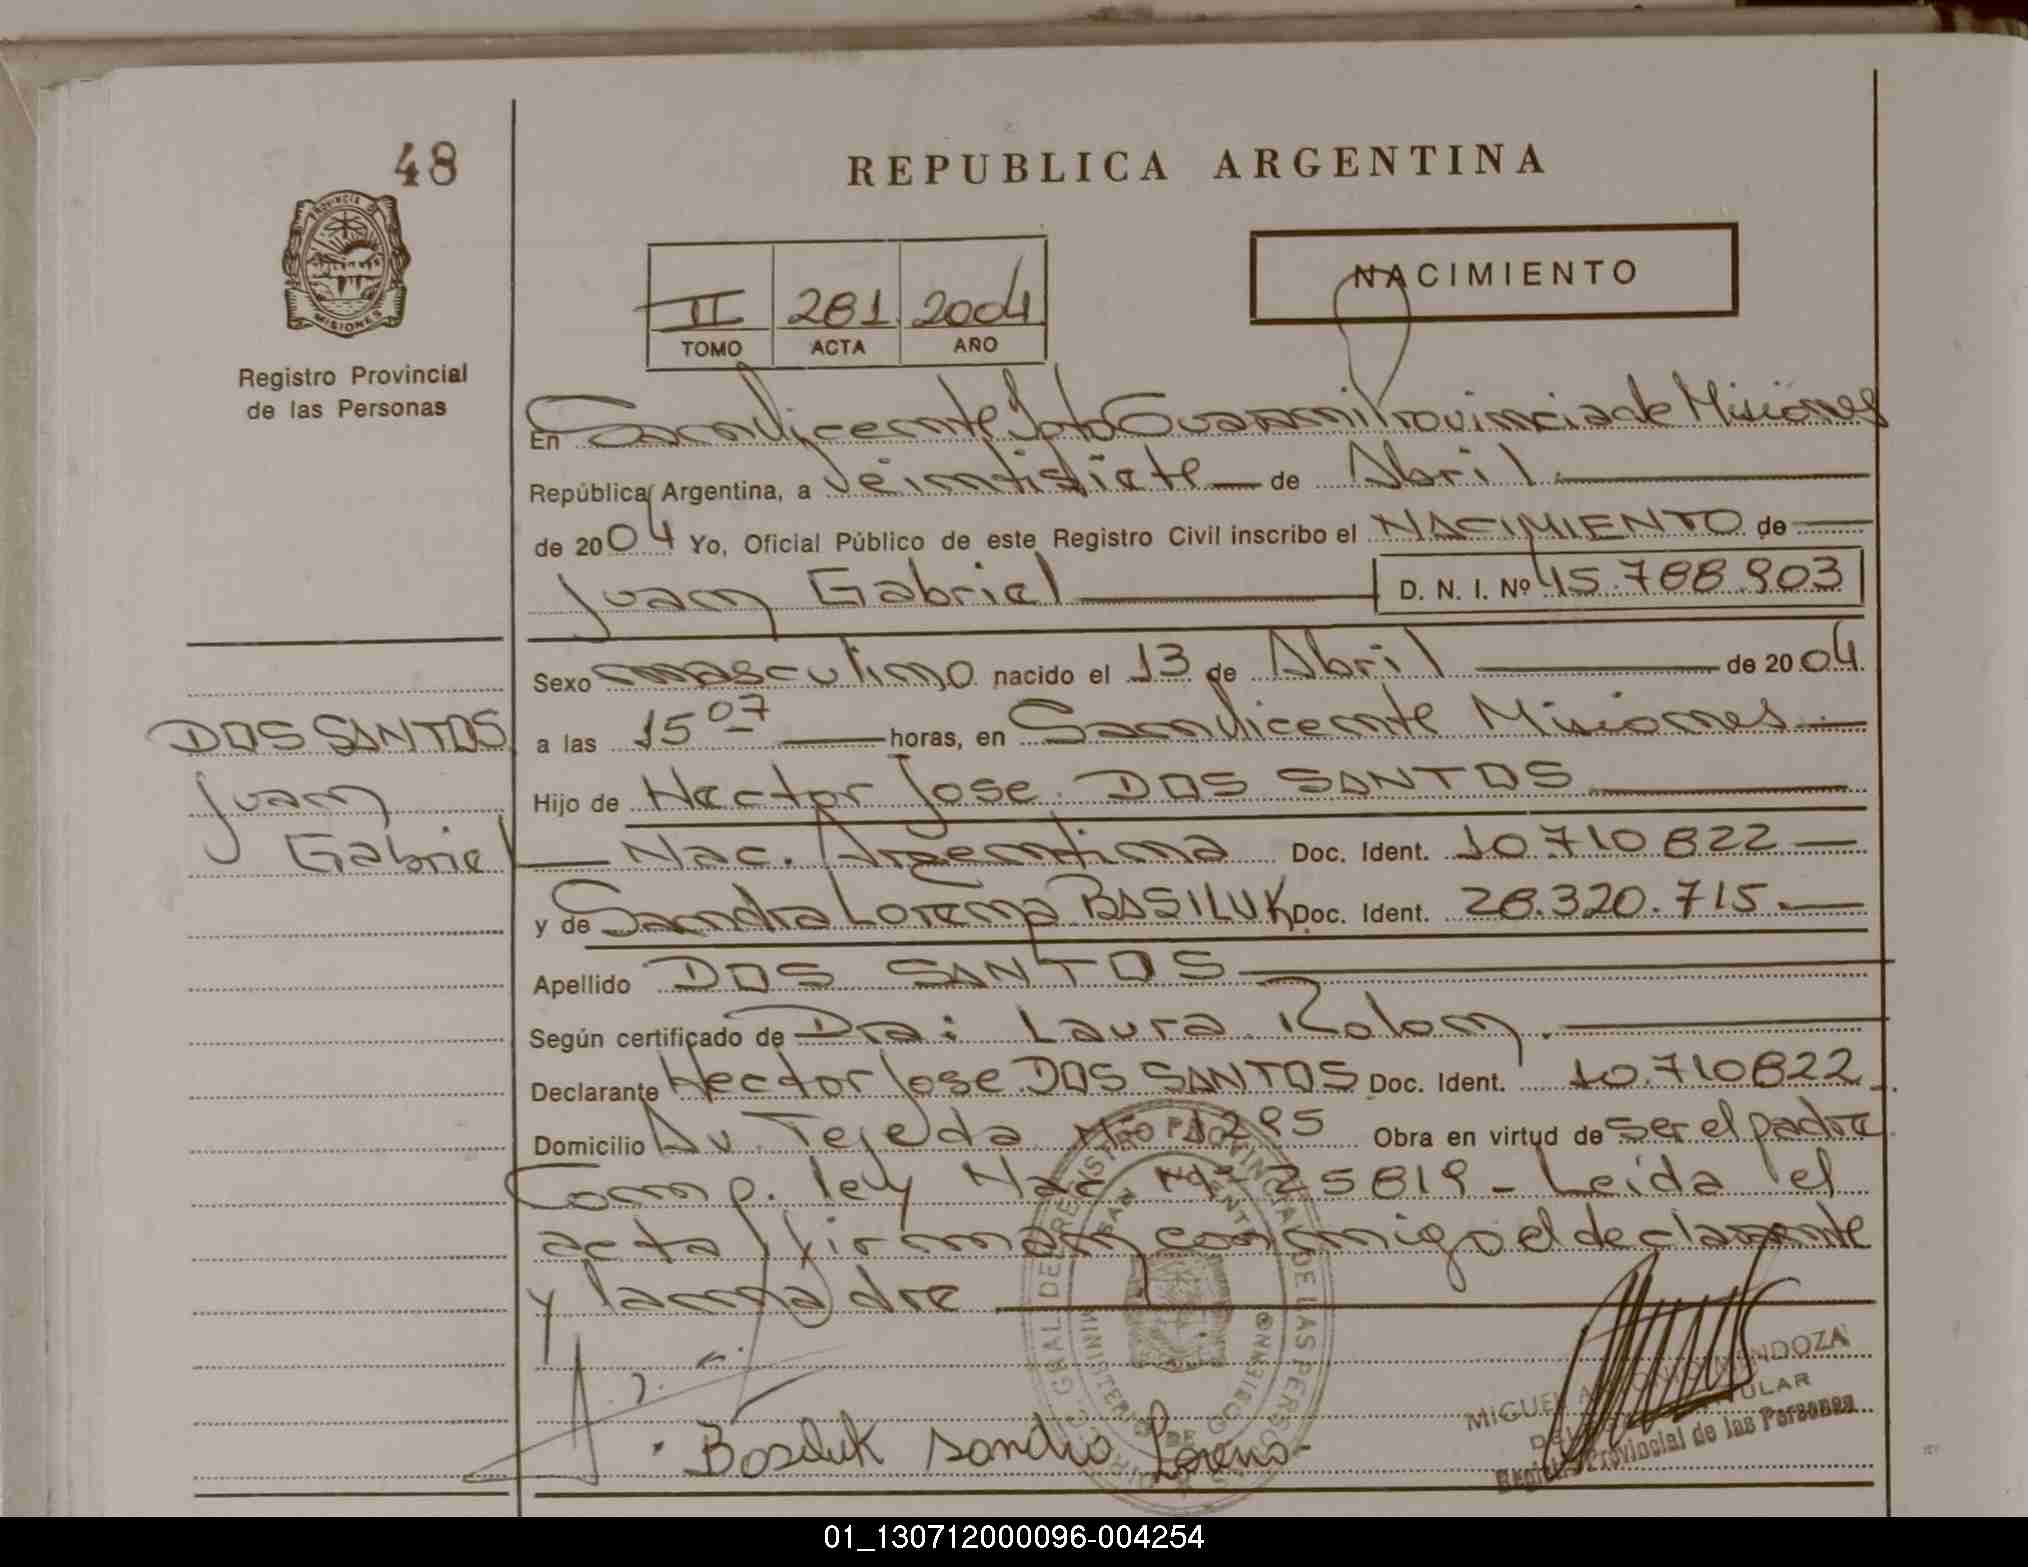 48
REPUBLICA ARGENTINA
PROVINCIA D
MISIONES
Registro Provincial
de las Personas
II 281 2004
TOMO ACTA AÑO
NACIMIENTO
En San Vicente Dpto Guarani Provincia de Misiones
República Argentina, a Veintisiete de Abril
de 2004 Yo, Oficial Público de este Registro Civil inscribo el NACIMIENTO de
Juan Gabriel D. N. I. Nº 45.788.903
Sexo masculino nacido el 13 de Abril de 2004.
a las 15 07 horas, en San Vicente Misiones
Hijo de Hector Jose DOS SANTOS
Nac. Argentina Doc. Ident. 10710822
y de Sandra Lorena BASILUK Doc. Ident. 28.320.715.
Apellido DOS SANTOS
Según certificado de Dra: Laura Rolon.
Declarante Hector Jose DOS SANTOS Doc. Ident. 10.710822
Domicilio Av. Tejeda Nro 1295 Obra en virtud de ser el padre
Comp. ley Nac Nº 25819 - Leida el
acta firman conmigo el declarante
y la madre
DOS SANTOS
Juan
Gabriel
Basiluk Sandra Lorena
MIGUEL ANTONIO MENDOZA
Registro Provincial de las Personas
01_130712000096-004254